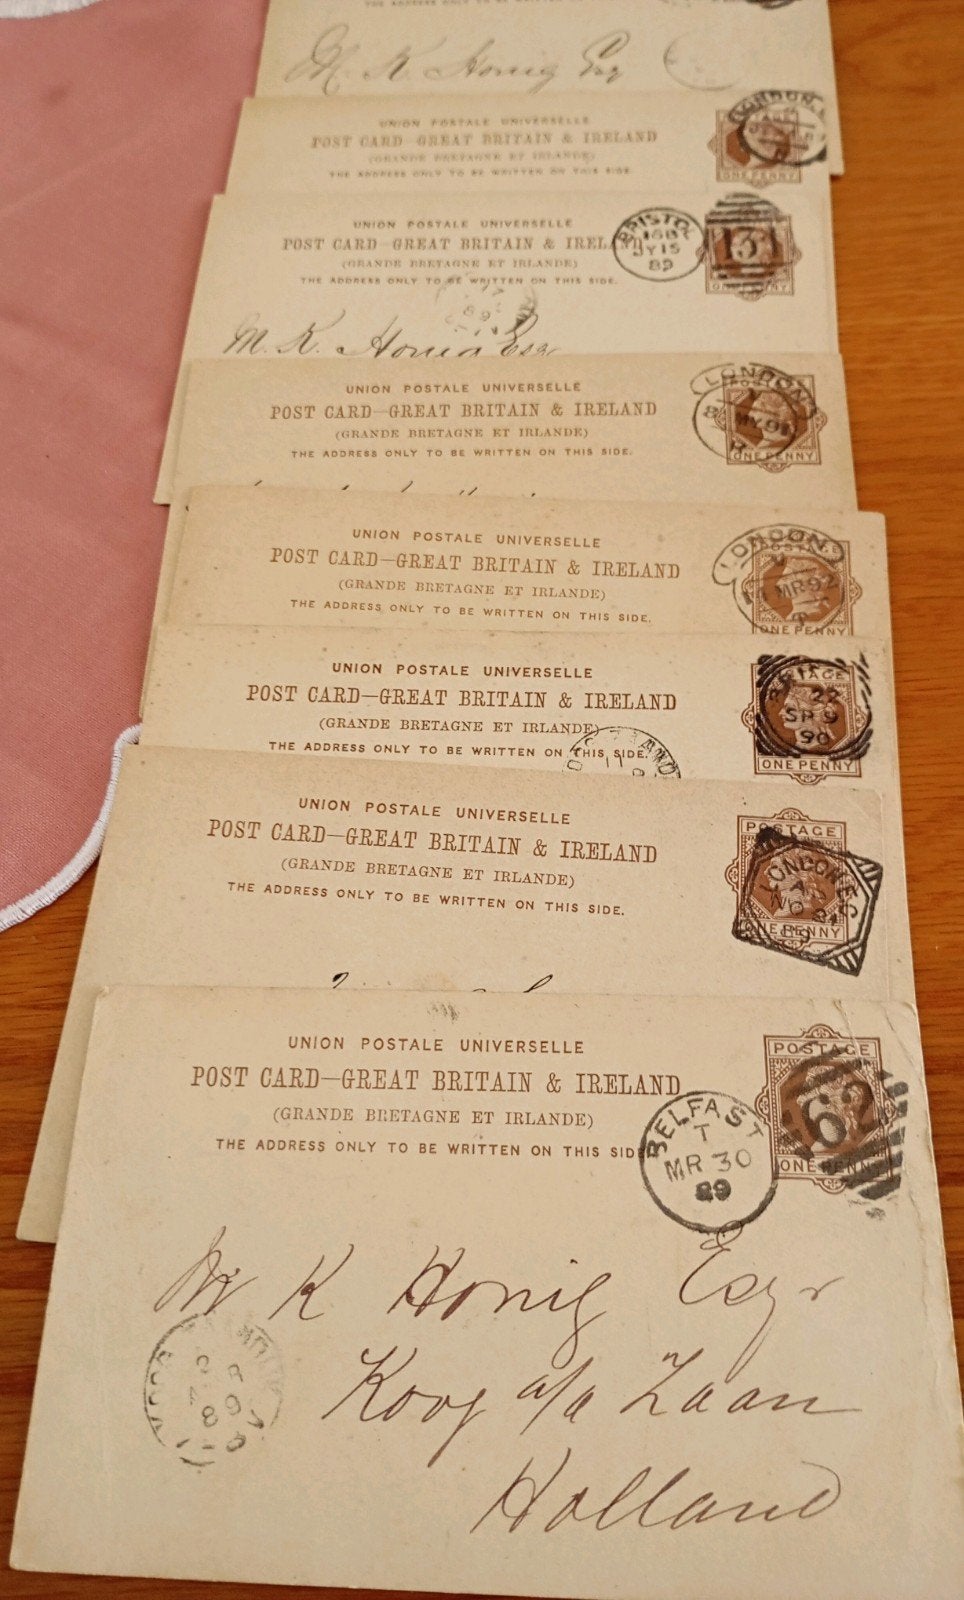 THE ADDRESS ONLY TO BE WRITTEN ON
M. K. Honig Esq
UNION POSTALE UNIVERSELLE
POST CARD—GREAT BRITAIN & IRELAND
(GRANDE BRETAGNE ET IRLANDE)
THE ADDRESS ONLY TO BE WRITTEN ON THIS SIDE.
LONDON
ONE PENNY
UNION POSTALE UNIVERSELLE
POST CARD—GREAT BRITAIN & IRELAND
(GRANDE BRETAGNE ET IRLANDE)
THE ADDRESS ONLY TO BE WRITTEN ON THIS SIDE.
BRISTOL
JY 15
89
131
ONE PENNY
M. K. Honig Esq
UNION POSTALE UNIVERSELLE
POST CARD—GREAT BRITAIN & IRELAND
(GRANDE BRETAGNE ET IRLANDE)
THE ADDRESS ONLY TO BE WRITTEN ON THIS SIDE.
LONDON
MY 91
ONE PENNY
UNION POSTALE UNIVERSELLE
POST CARD—GREAT BRITAIN & IRELAND
(GRANDE BRETAGNE ET IRLANDE)
THE ADDRESS ONLY TO BE WRITTEN ON THIS SIDE.
POSTAGE
LONDON
MR 92
ONE PENNY
UNION POSTALE UNIVERSELLE
POST CARD—GREAT BRITAIN & IRELAND
(GRANDE BRETAGNE ET IRLANDE)
THE ADDRESS ONLY TO BE WRITTEN ON THIS SIDE.
22
SP 9
90
ONE PENNY
UNION POSTALE UNIVERSELLE
POST CARD—GREAT BRITAIN & IRELAND
(GRANDE BRETAGNE ET IRLANDE)
THE ADDRESS ONLY TO BE WRITTEN ON THIS SIDE.
POSTAGE
LONDON E.C
ONE PENNY
UNION POSTALE UNIVERSELLE
POST CARD—GREAT BRITAIN & IRELAND
(GRANDE BRETAGNE ET IRLANDE)
THE ADDRESS ONLY TO BE WRITTEN ON THIS SIDE
POSTAGE
62
ONE PENNY
BELFAST
T
MR 30
89
Mr K Honig Esqr
Koog a/a Zaan
Holland